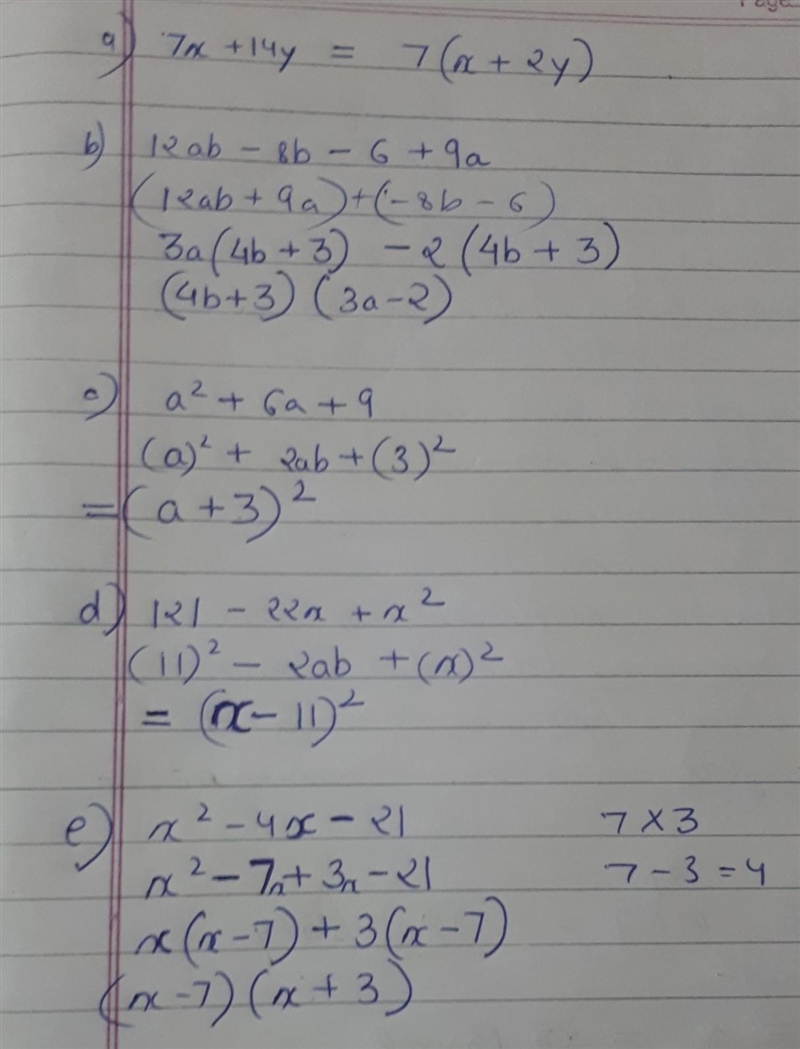 Page
a) 7x + 14y = 7(x + 2y)
b) 12ab - 8b - 6 + 9a
(12ab + 9a) + (-8b - 6)
3a(4b + 3) - 2(4b + 3)
(4b+3) (3a-2)
c) a² + 6a + 9
(a)² + 2ab + (3)²
= (a + 3)²
d) 121 - 22x + x²
(11)² - 2ab + (x)²
= (x - 11)²
e) x² - 4x - 21 7 × 3
x² - 7x + 3x - 21 7 - 3 = 4
x(x - 7) + 3(x - 7)
(x - 7) (x + 3)